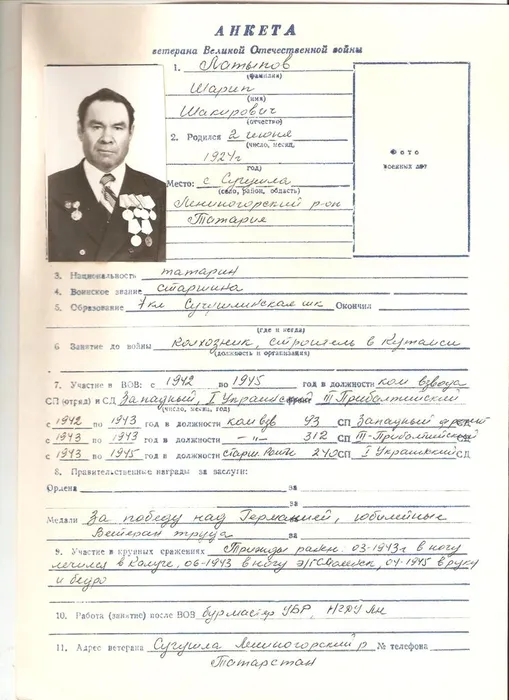 АНКЕТА
ветерана Великой Отечественной войны
1. Латыпов
(фамилия)
Шарип
(имя)
Шакирович
(отчество)
2. Родился 2 июня
(число, месяц,
1924г
год)
Место: с Сугушла
(село, район, область)
Лениногорский р-он
Татария
Фото
военных лет
3. Национальность татарин
4. Воинское звание старшина
5. Образование 7кл Сугушлинская шк Окончил
(где и когда)
6 Занятие до войны колхозник, строитель в Кутаиси
(должность и организация)
7. Участие в ВОВ: с 1942 по 1945 год в должности ком взвода
СП (отряд) и СД Западный, I Украинский III Прибалтийский
(число, месяц, год)
с 1942 по 1943 год в должности ком взв 93 СП Западный
с 1943 по 1943 год в должности -„- 312 СП III-Прибалтийский
с 1943 по 1945 год в должности старш. роты 240 СП I Украинский СД
8. Правительственные награды за заслуги:
Ордена за
за
Медали За победу над Германией, юбилейные
Ветеран труда за
9. Участие в крупных сражениях Трижды ранен. 03-1943г в ногу
лечился в Калуге, 06-1943 в ногу Смоленск, 04-1945 в руку
и бедро
10. Работа (занятие) после ВОВ бурмастер УБР, НГДУ
11. Адрес ветерана Сугушла Лениногорский р № телефона
Татарстан